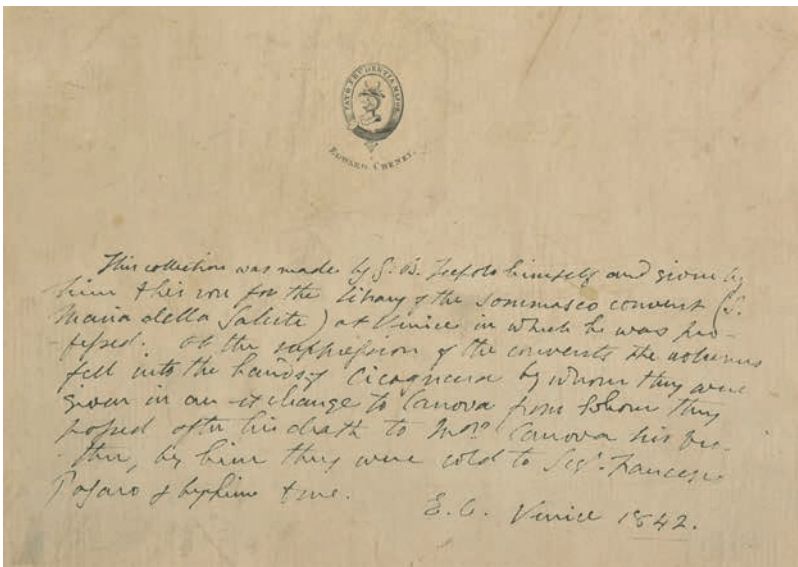 FATO PRUDENTIA MAJOR
EDWARD CHENEY.
This collection was made by G. B. Tiepolo himself and given by
him to his son for the library of the Sommasco convent (S.
Maria della Salute) at Venice in which he was pro-
-fessed. At the suppression of the convents the volumes
fell into the hands of Cicognara by whom they were
given in an exchange to Canova from whom they
passed after his death to Monr. Canova his bro-
-ther, by him they were sold to Sigr. Francesco
Pesaro & by him to me.
E. C. Venice 1842.